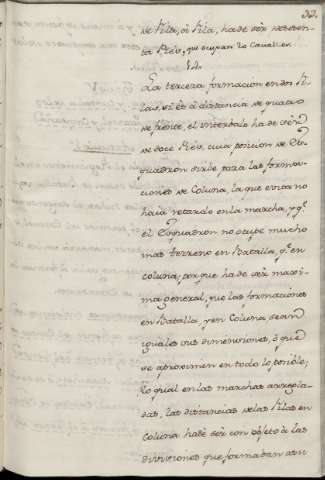 32.
de Fila, à Fila, hade sèr sesenta
ta Piés, que ocupan los Cavallos.
La tercera formación en dos Fi-
las, si és à distancia de quatro
de frente, el intervalo ha de sèr
de doce Piés, cuia posicion de Es-
quadron sirbe, para las formas-
ciones de Coluna, la que criar no
haia retardo en la marcha, y qe
el Esquadron no ocupe mucho
mas terreno en Batalla, qe en
coluna, por que ha de sèr maxi-
ma general, que las formaciones
en Batalla, y en Coluna sean
iguales sus dimensiones, ò que
se aproximen en todo lo posible;
lo qual en las marchas arregla-
das, las distancias de las Filas en
Coluna habrè sèr con objeto à las
divisiones que formadan asu